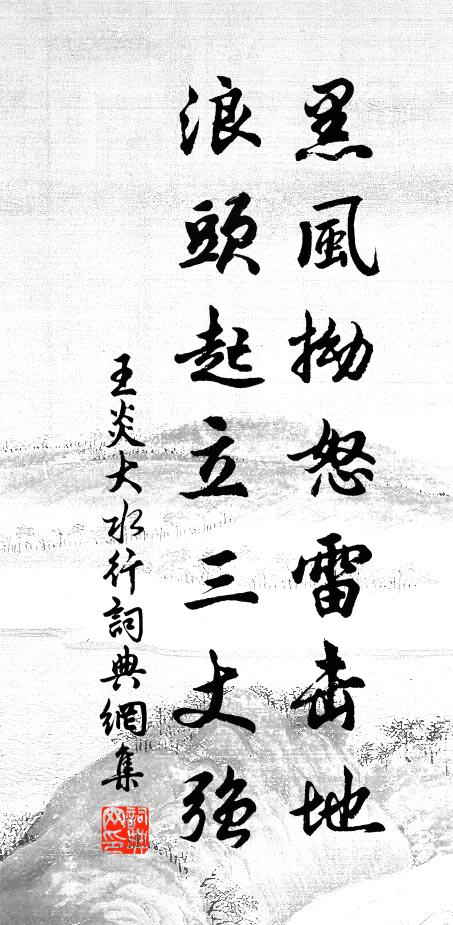 黑風拗怒雷击地
浪頭起立三丈強
王炎大水行詞典網集
詞典网印